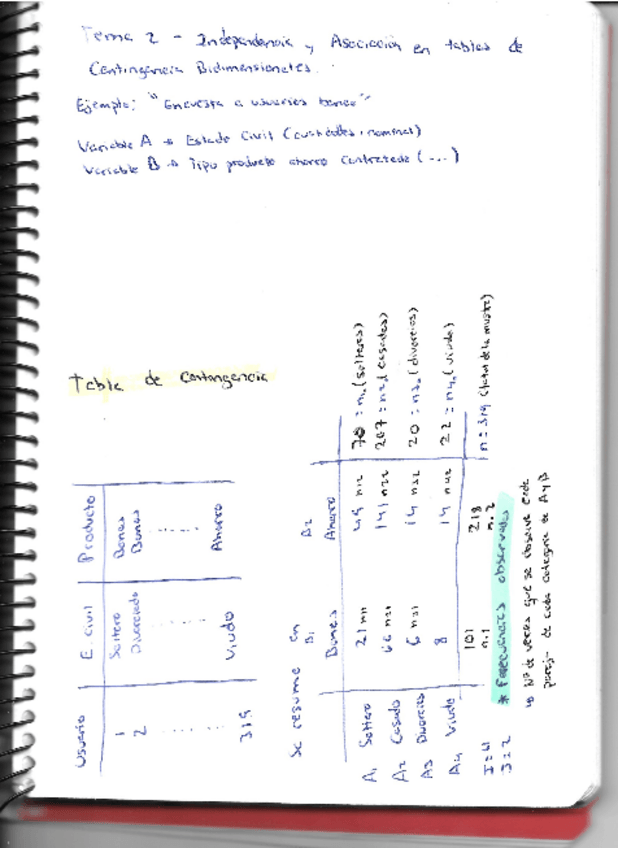 Tema 2 - Independencia y Asociación en tablas de
Contingencia Bidimensionales.
Ejemplo: "Encuesta a usuarios banco"
Variable A → Estado Civil (cualidades, nominal)
Variable B → Tipo producto ahorro contratado (...)
Tabla de contingencia
Usuario E. civil Producto
1 Soltero Bonos
2 Divorciado Bonos
319 Viudo Ahorro
Se resume en
B1 B2
Bonos Ahorro
A1 Soltero 21 n11 49 n12 70 = n1. (solteros)
A2 Casado 66 n21 141 n22 207 = n2. (casados)
A3 Divorcias 6 n31 14 n32 20 = n3. (divorcios)
A4 Viudo 8 14 n42 22 = n4. (viudo)
101 218 n = 319 (total de la muestra)
n.1 n.2
I = 4
J = 2
* Frecuencias observadas
↳ Nº de veces que se observa cada
pareja de cada categoria de A y B